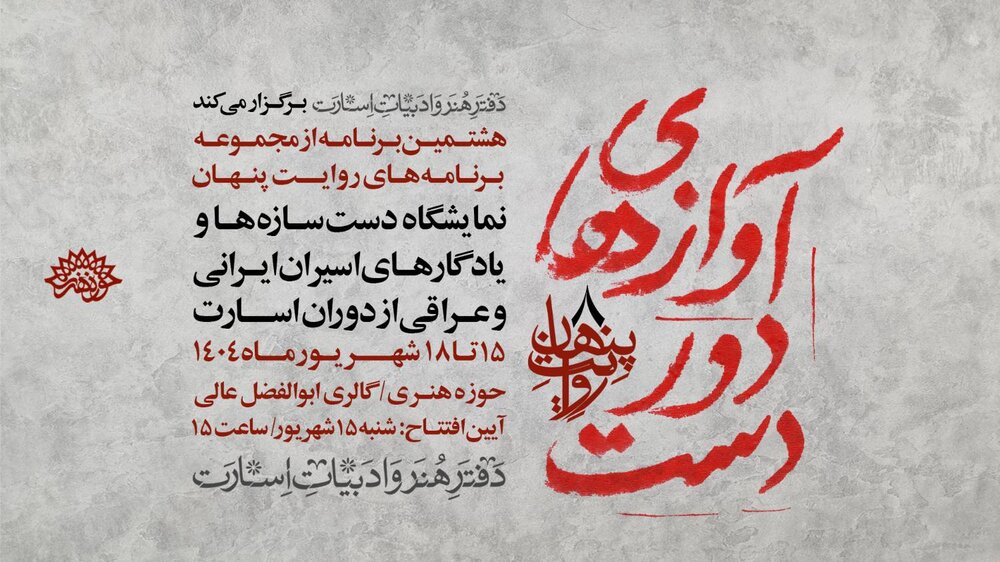 آوازهای
دور
دست
روایت پنهان ۸
دفتر هنر و ادبیات اسارت برگزار می‌کند
هشتمین برنامه از مجموعه
برنامه‌های روایت پنهان
نمایشگاه دست‌سازه‌ها و
یادگارهای اسیران ایرانی
و عراقی از دوران اسارت
۱۵ تا ۱۸ شهریور ماه ۱۴۰۴
حوزه هنری / گالری ابوالفضل عالی
آیین افتتاح: شنبه ۱۵ شهریور / ساعت ۱۵
دَفتَرِ هُنَر وَ ادَبیّاتِ اِسارَت
حوزه هنری